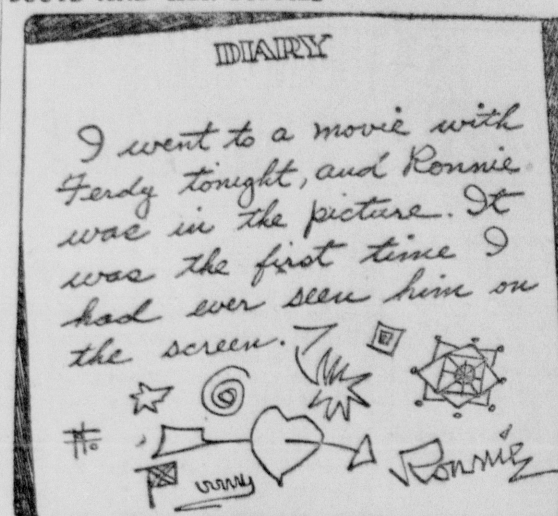 DIARY
I went to a movie with
Ferdy tonight, and Ronnie
was in the picture. It
was the first time I
had ever seen him on
the screen.
Ronnie